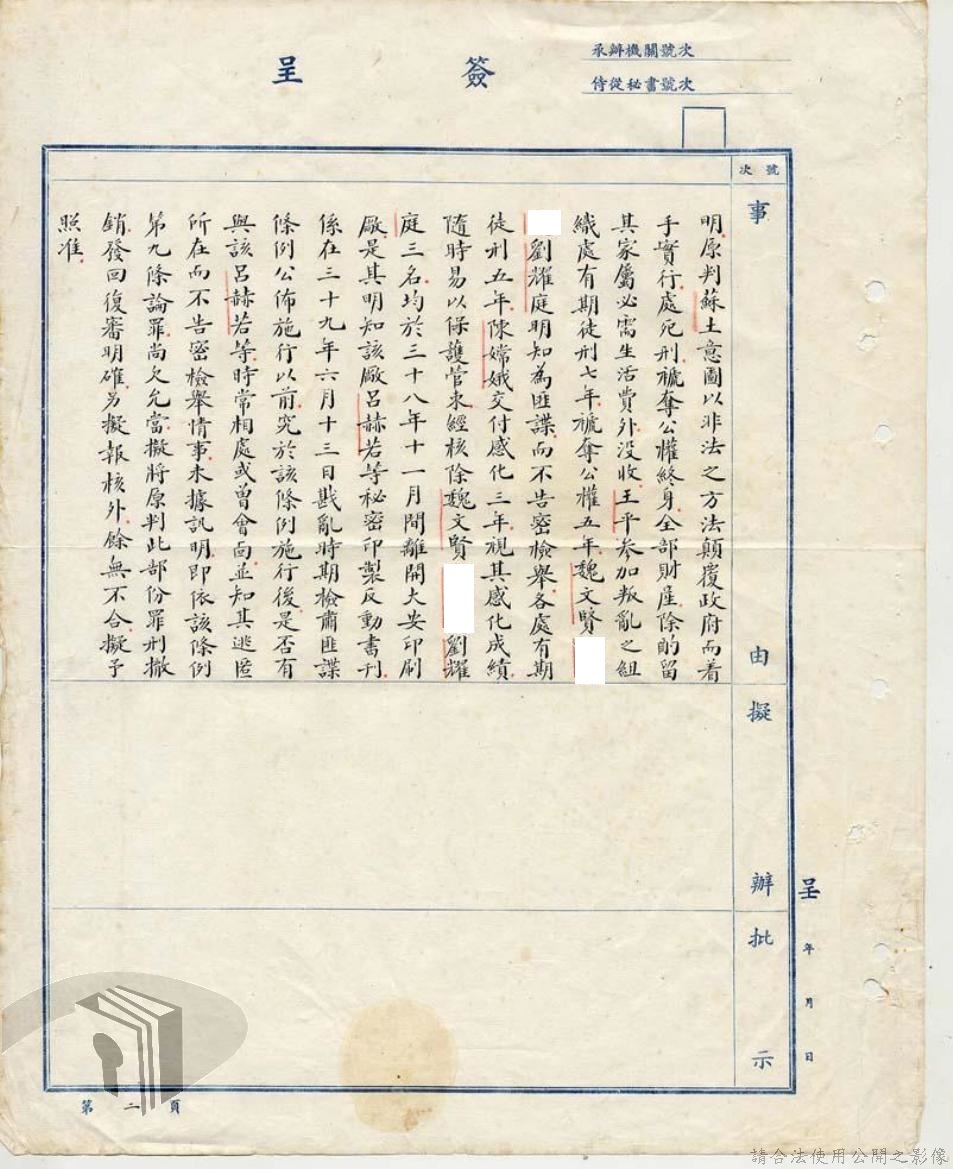 承辦機關號次
侍從秘書號次
簽呈
號次
事由
明.原判蘇土意圖以非法之方法顛覆政府而着
手實行.處死刑.褫奪公權終身.全部財產.除酌留
其家屬必需生活費外.沒收.王平參加叛亂之組
織處有期徒刑七年.褫奪公權五年.魏文賢
劉耀庭明知為匪諜.而不告密檢舉.各處有期
徒刑五年.陳嫦娥交付感化三年.視其感化成績.
隨時易以保護管束.經核除魏文賢 劉耀
庭三名.均於三十八年十一月間離開大安印刷
廠.是其明知該廠呂赫若等秘密印製反動書刊.
係在三十九年六月十三日戡亂時期檢肅匪諜
條例公佈施行以前.究於該條例施行後.是否有
與該呂赫若等.時常相處或曾會面.並知其逃匿
所在而不告密檢舉情事.未據訊明.即依該條例
第九條論罪.尚欠允當.擬將原判此部份罪刑撤
銷.發回復審明確.另擬報核外.餘無不合.擬予
照准.
擬辦
批示
呈 年 月 日
第二頁
請合法使用公開之影像